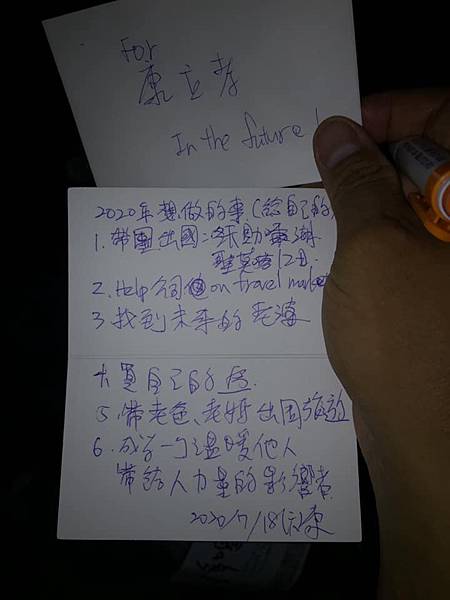 For
康立孝
In the future!
2020年想做的事(給自己的
1. 帶團出國:
2. Help 公司 on travel market
3. 找到未來的老婆
4. 買自己的房
5. 帶老爸、老媽出國旅遊
6. 成為一個溫暖他人
帶給人力量的影響者
2020/7/18